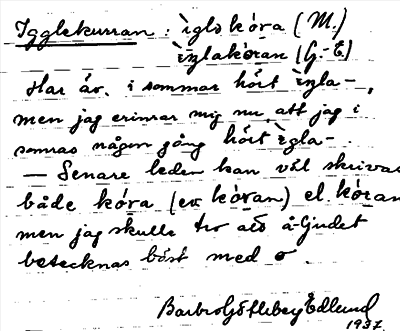 Igglekurran: ìglo kóra (M.)
ìglakòran (G.-E)
Har äv. i sommar hört ìgla-,
men jag erinrar mig nu att jag i
somras någon gång hört ìgla-.
— Senare leden kan väl skrivas
både kóra (ev. kóran) el. kòran
men jag skulle tro att å-ljudet
betecknas bäst med o.
Barbro Edlund
1937.